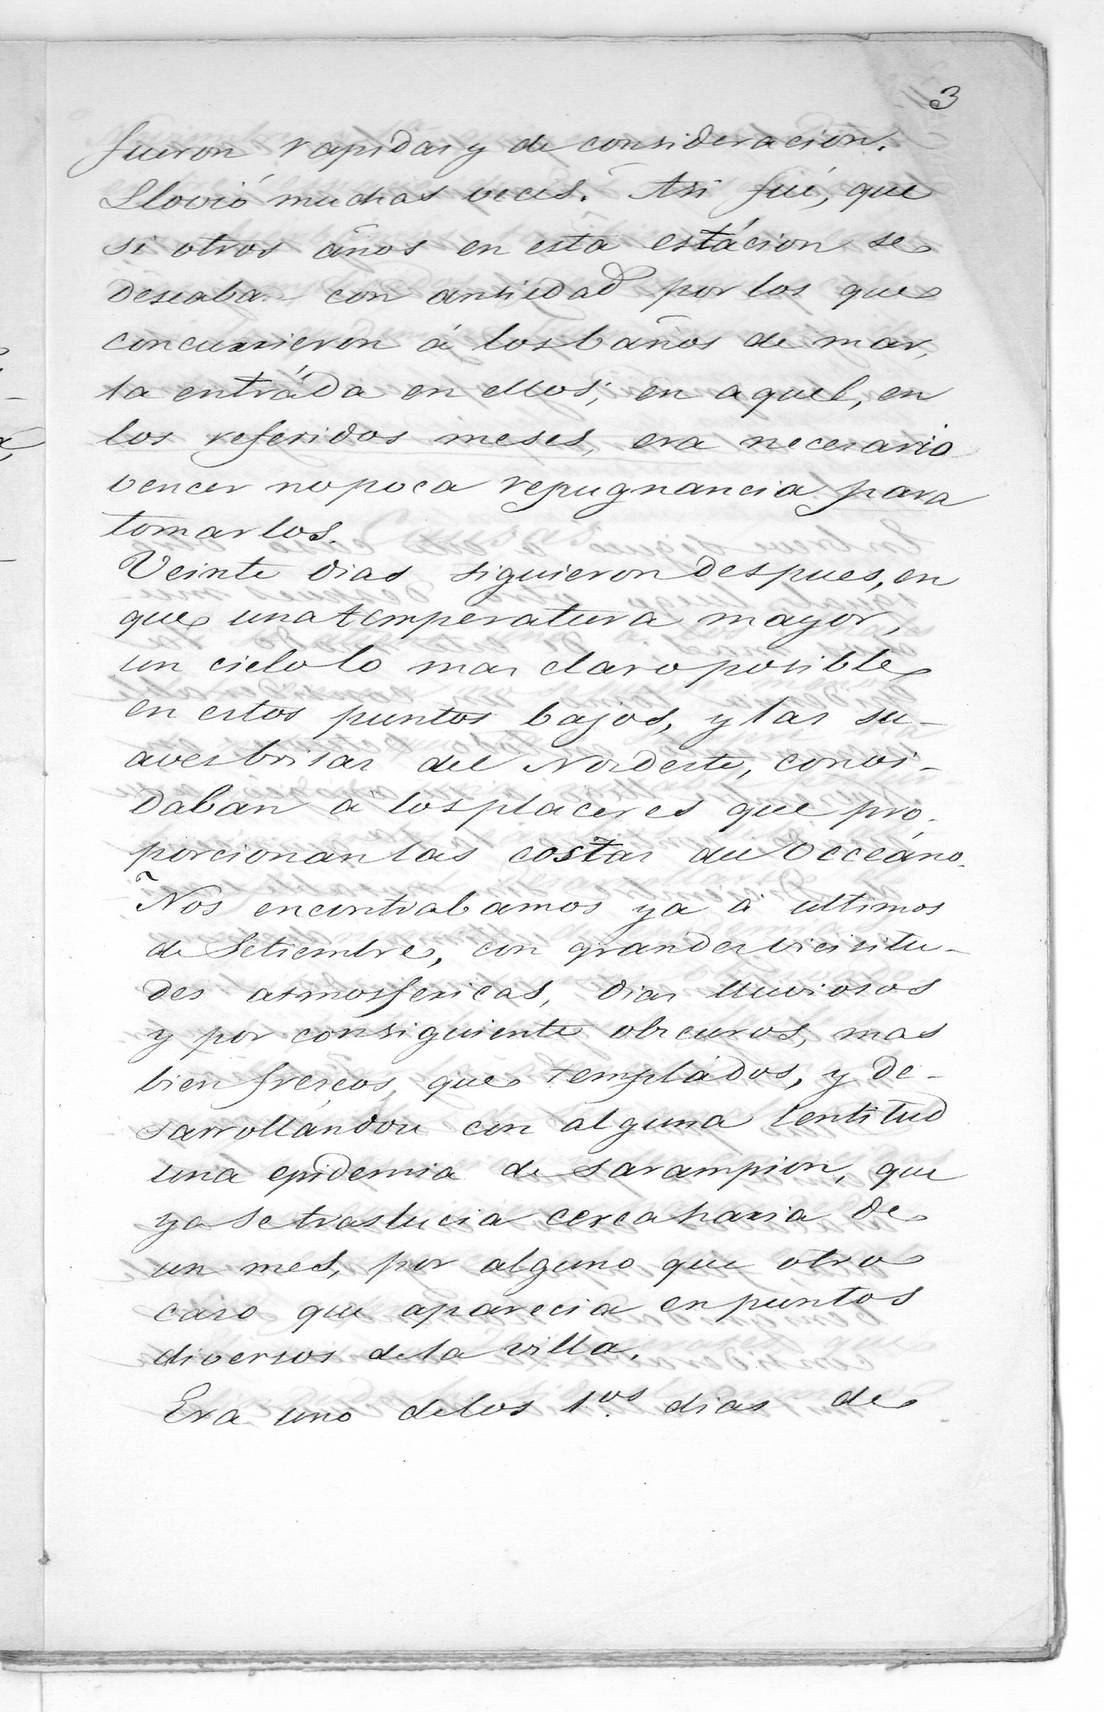 3
fueron rapidas y de consideracion.
Llovió muchas veces. Asi fué, que
si otros años en esta estácion se
deseaba con ansiedad por los que
concurrieron á los baños de mar,
la entráda en ellos; en aquel, en
los referidos meses, era necesario
vencer no poca repugnancia para
tomarlos.
Veinte dias siguieron despues, en
que una temperatura mayor,
un cielo lo mas claro posible
en estos puntos bajos, y las su-
aves brisas del Nordeste, convi-
daban a los placeres que pro-
porcionan las costas del Occeáno.
Nos encontrabamos ya á ultimos
de Setiembre, con grandes vicisitu-
des atmosfericas, dias lluviosos
y por consiguiente obscuros, mas
bien frescos, que templádos, y de-
sarrollándose con alguna lentitud
una epidemia de sarampion, que
ya se traslucia cerca haria de
un mes, por alguno que otro
caso que aparecia en puntos
diversos de la villa.
Era uno de los 1.os dias de